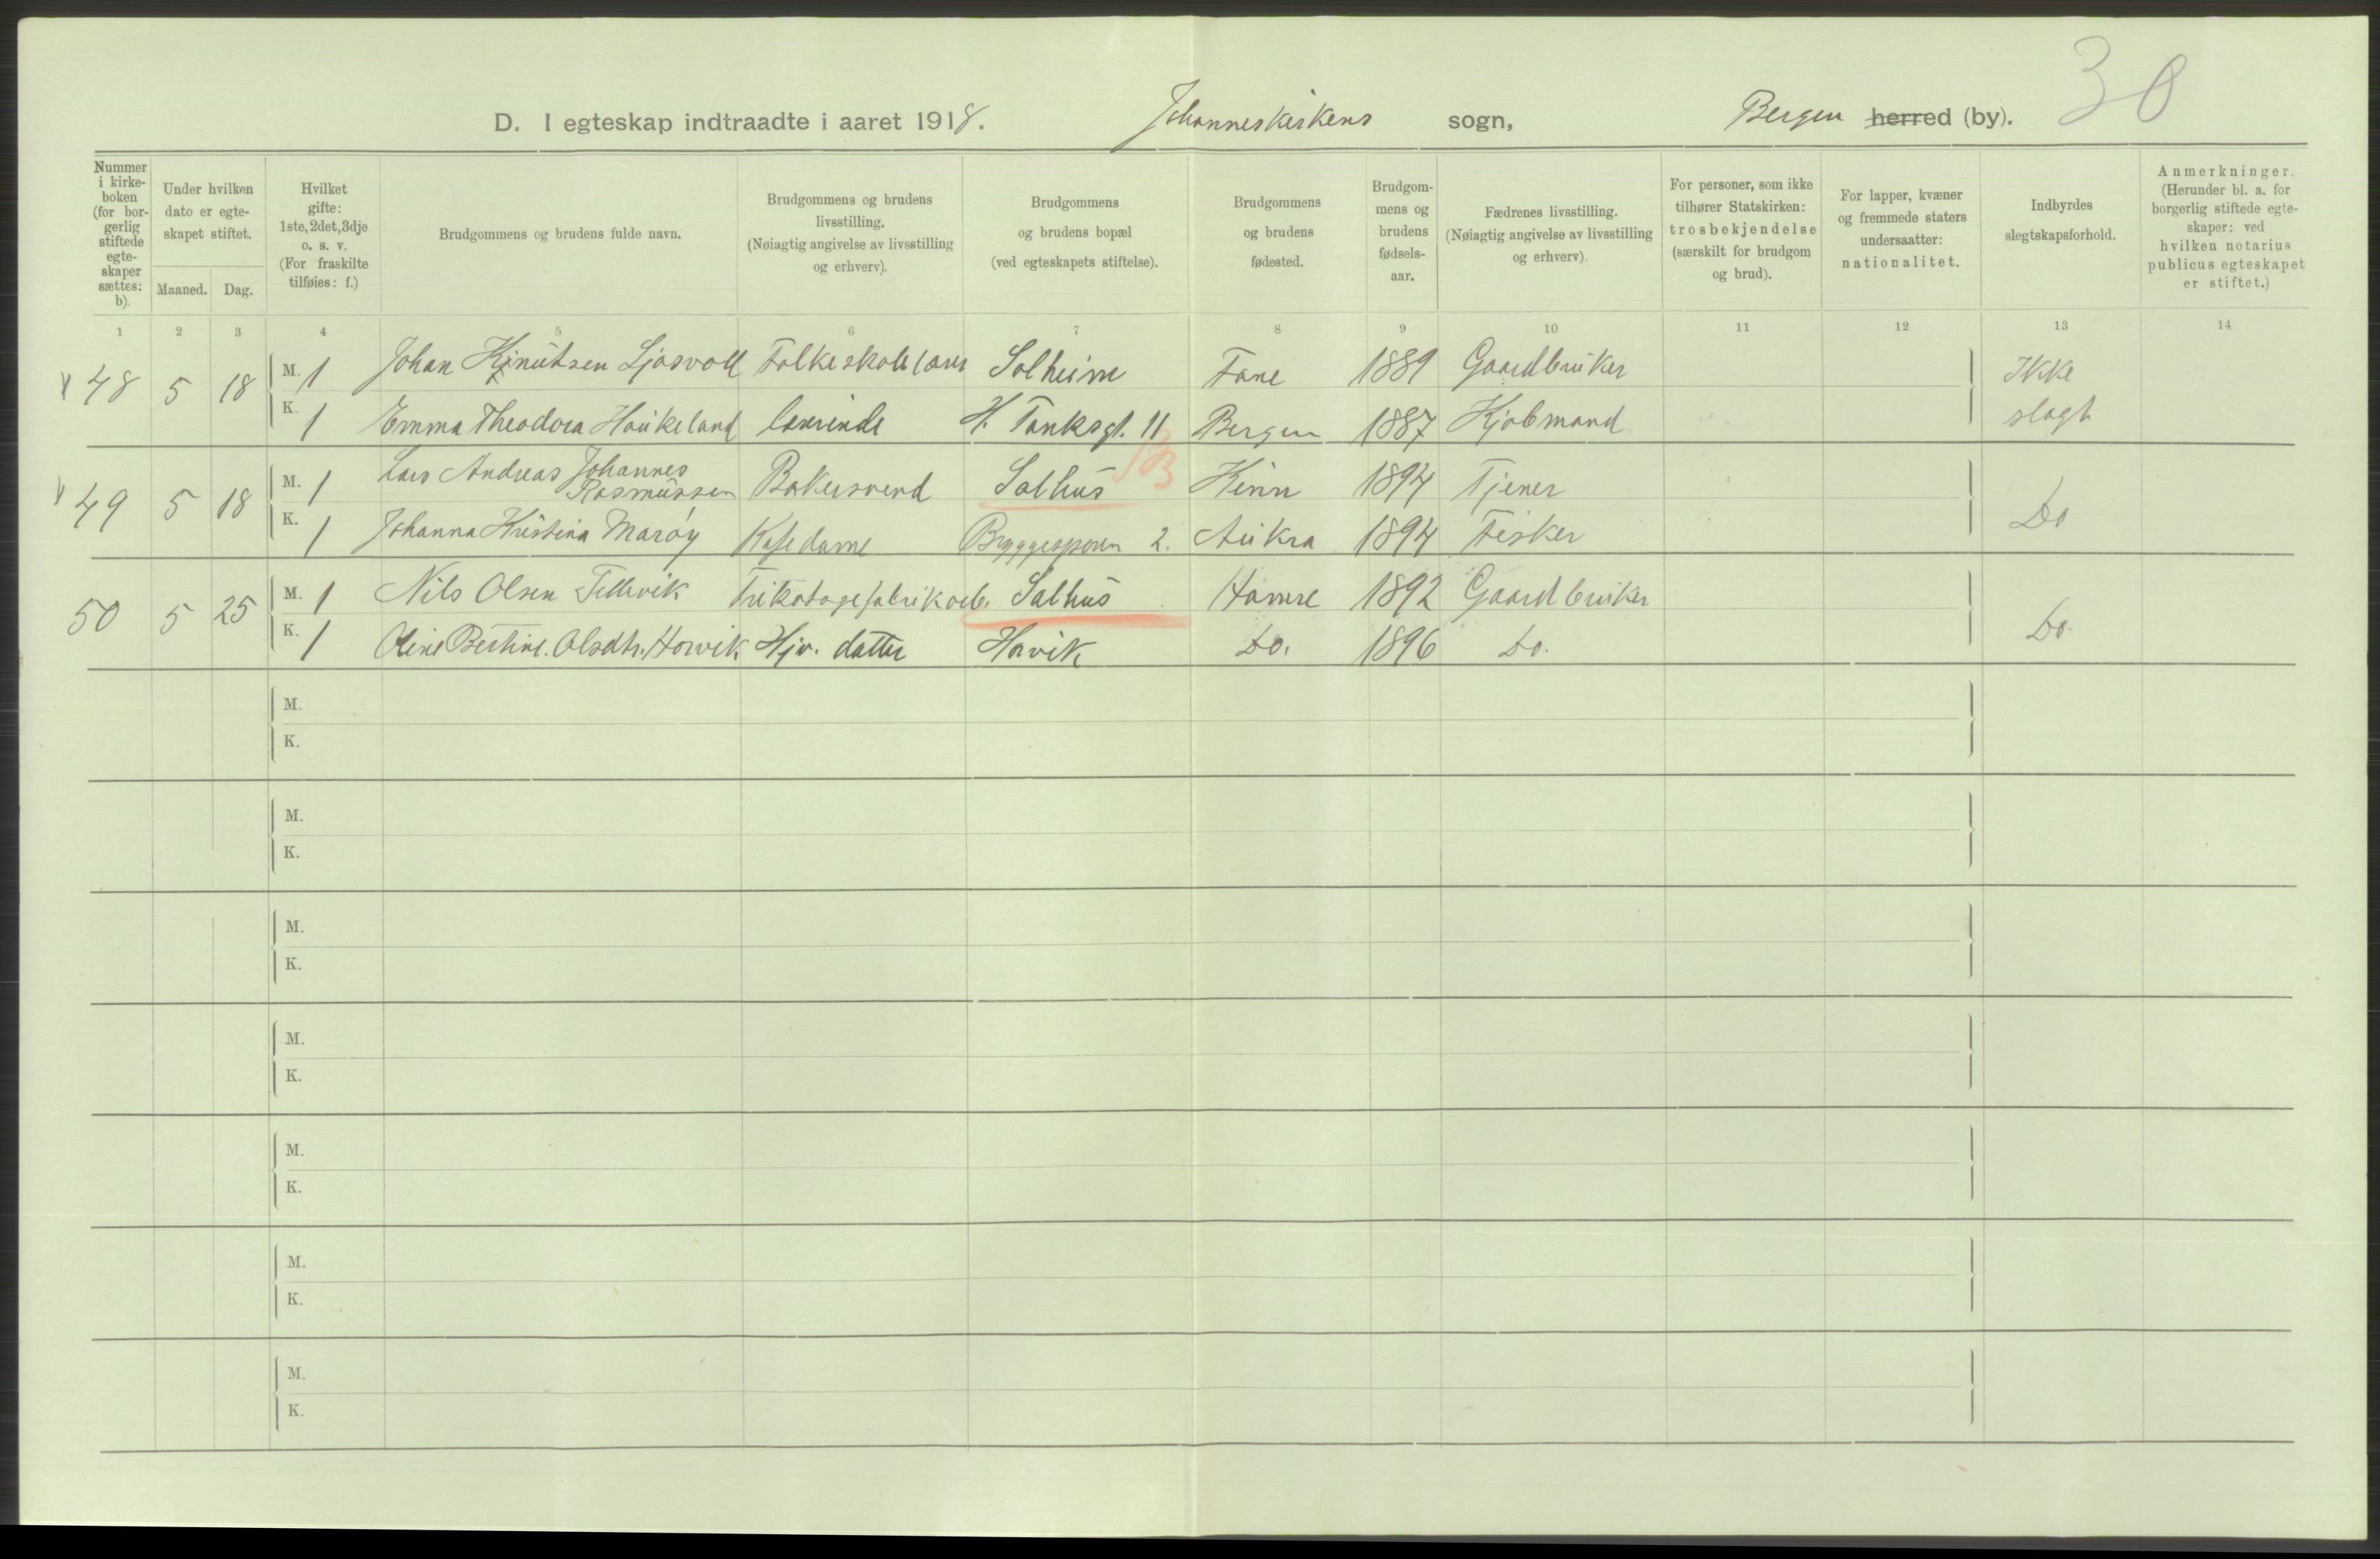 30
D. I egteskap indtraadte i aaret 1918. Johanneskirkens sogn, Bergen herred (by).
Nummer i kirkeboken (for borgerlig stiftede egteskaper sættes: b).
Under hvilken dato er egteskapet stiftet.
Maaned. Dag.
Hvilket gifte: 1ste, 2det, 3dje o. s. v. (For fraskilte tilføies: f.)
Brudgommens og brudens fulde navn.
Brudgommens og brudens livsstilling. (Nøiagtig angivelse av livsstilling og erhverv).
Brudgommens og brudens bopæl (ved egteskapets stiftelse).
Brudgommens og brudens fødested.
Brudgommens og brudens fødselsaar.
Fædrenes livsstilling. (Nøiagtig angivelse av livsstilling og erhverv).
For personer, som ikke tilhører Statskirken: trosbekjendelse (særskilt for brudgom og brud).
For lapper, kvæner og fremmede staters undersaatter: nationalitet.
Indbyrdes slegtskapsforhold.
Anmerkninger. (Herunder bl. a. for borgerlig stiftede egteskaper: ved hvilken notarius publicus egteskapet er stiftet.)
1 2 3 4 5 6 7 8 9 10 11 12 13 14
48 5 18 M. 1 Johan Knutsen Ljosvoll Folkeskolelærer Solheim Fane 1889 Gaardbruker Ikke
K. 1 Emma Theodora Haukeland lærerinde H. Tanksgt. 11 Bergen 1887 Kjøbmand slegt
49 5 18 M. 1 Lars Andreas Johannes Rasmussen Bakersvend Salhus Kinn 1894 Tjener Do
K. 1 Johanna Kristina Marøy Kafedame Bryggesporen 2. Aukra 1894 Fisker
50 5 25 M. 1 Nils Olsen Tellevik Trikotagefabrikarb. Salhus Hamre 1892 Gaardbruker Do.
K. 1 Oline Bertine Olsdtr. Horvik Hjv. datter Horvik Do. 1896 Do.
M.
K.
M.
K.
M.
K.
M.
K.
M.
K.
M.
K.
M.
K.